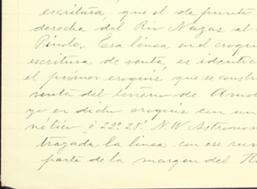 escritura, que el de punto
derecha del Rio Nazas al
Pinole. Esa linea en el croquis
escritura de venta, es identica
el primer croquis que se const
venta del terreno de
yo en dicho croquis con un
nético ó 22º 28' N.W. Astronom
trazada la linea con ese rum
parte de la margen del R